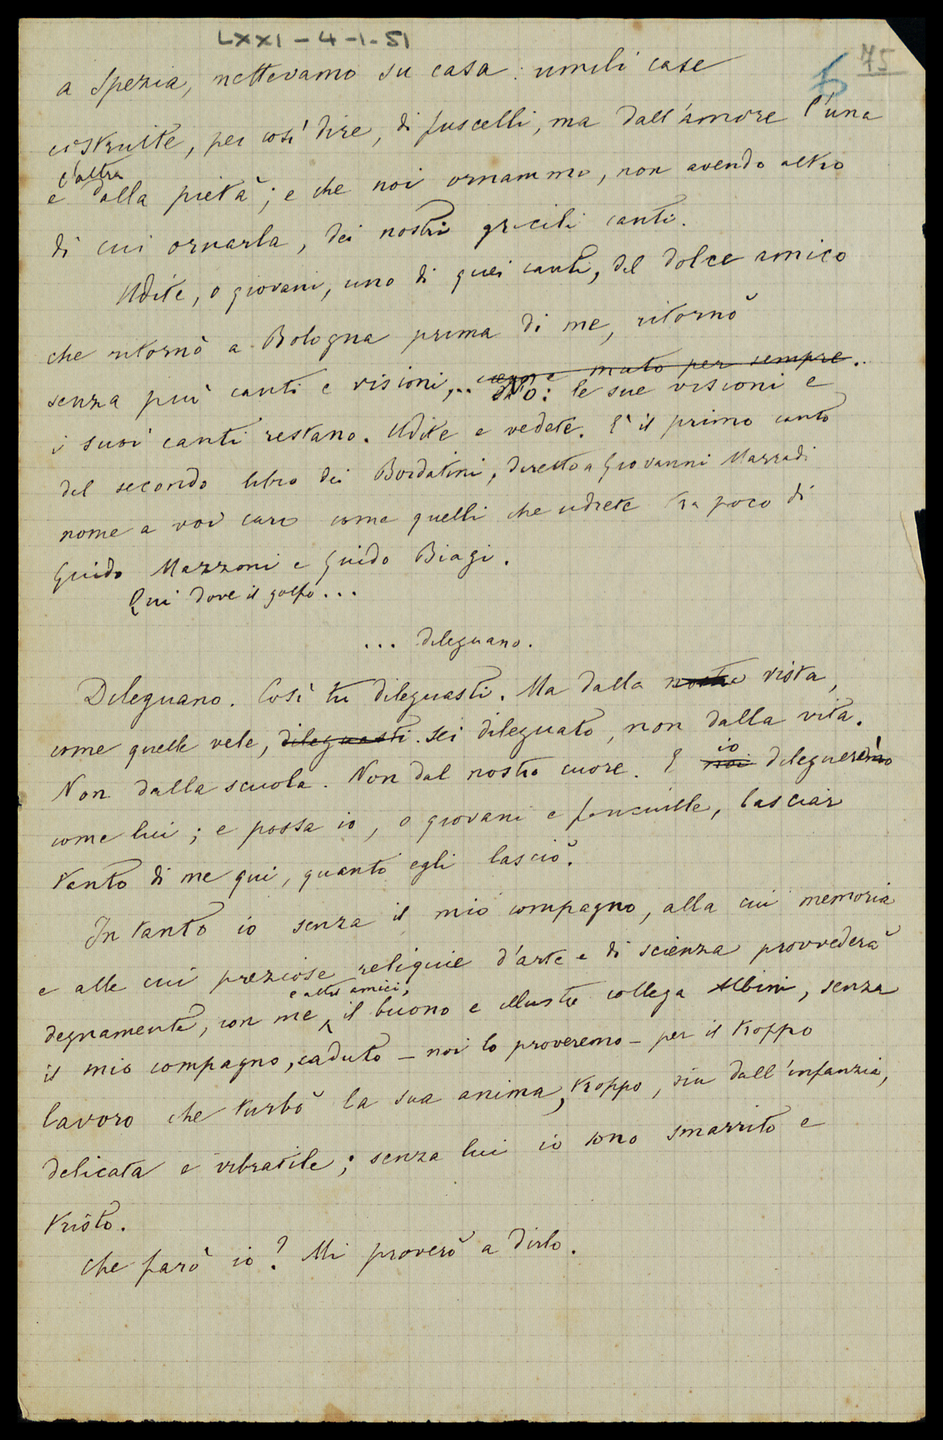 LXXI-4-1-51
75
5
a Spezia, mettevamo su casa: umili case
costruite, per così dire, di fuscelli, ma dall'amore l'una
l'altra
e dalla pietà; e che noi ornammo, non avendo altro
di cui ornarla, dei nostri gracili canti.
Udite, o giovani, uno di quei canti, del dolce amico
che ritornò a Bologna prima di me, ritornò
senza più canti e visioni,.. muto per sempre.
no: le sue visioni e
i suoi canti restano. Udite e vedete. È il primo canto
del secondo libro dei Bordatini, diretto a Giovanni Marradi
nome a voi caro come quelli che udrete tra poco di
Guido Mazzoni e Guido Biagi.
Qui dove il golfo...
... dileguano.
Dileguano. Così tu dileguasti. Ma dalla nostra vista,
come quelle vele, dileguasti. sei dileguato, non dalla vita.
io
Non dalla scuola. Non dal nostro cuore. E noi dileguerò
come lui; e possa io, o giovani e fanciulle, lasciar
tanto di me qui, quanto egli lasciò.
Intanto io senza il mio compagno, alla cui memoria
e alle cui preziose reliquie d'arte e di scienza provvederà
e altri amici,
degnamente, con me il buono e illustre collega Albini, senza
il mio compagno, caduto - noi lo proveremo - per il troppo
lavoro che turbò la sua anima, troppo, sin dall'infanzia,
delicata e vibratile; senza lui io sono smarrito e
tristo.
Che farò io? Mi proverò a dirlo.